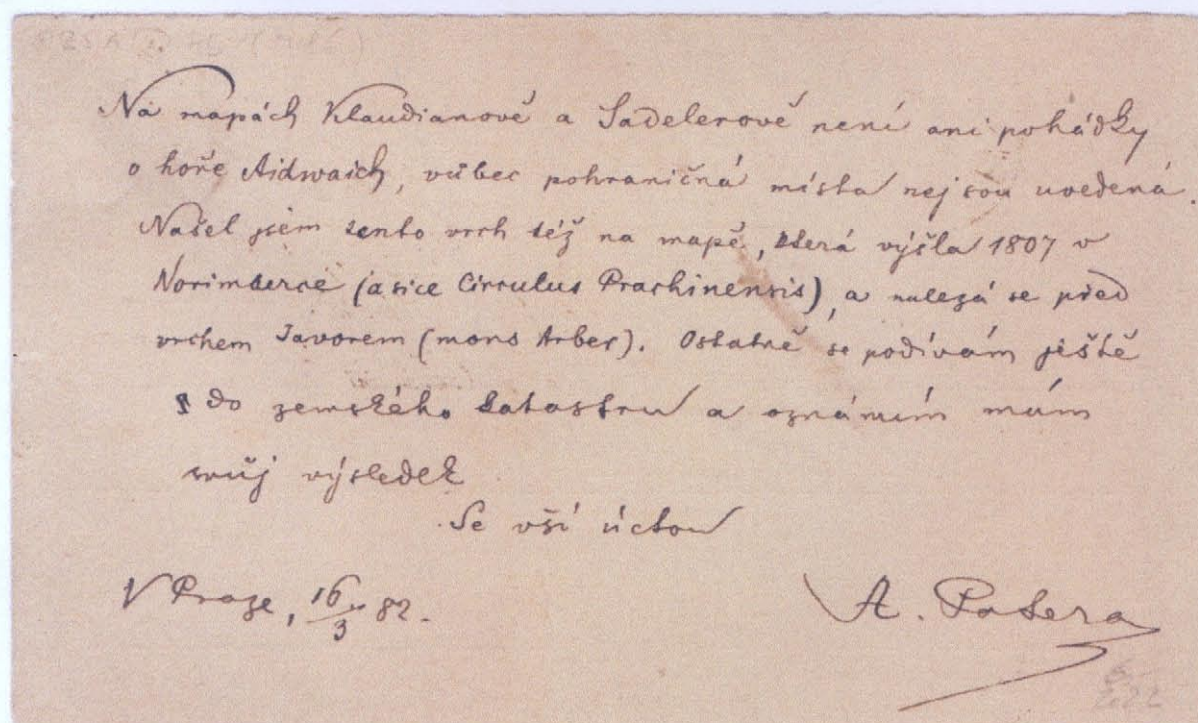 Na mapách Klaudianově a Sadelerově není ani pohádky
o hoře Aidwaich, vůbec pohraničná místa nejsou uvedená.
Našel jsem tento vrch též na mapě, která výšla 1807 v
Norimberce (a sice Circulus Prachinensis), a nalezá se před
vrchem Javorem (mons Arber). Ostatně se podívám ještě
do zemského katastru a oznámím mám
svůj výsledek
Se vší úctou
V Praze, 16/3 82.
A. Patera